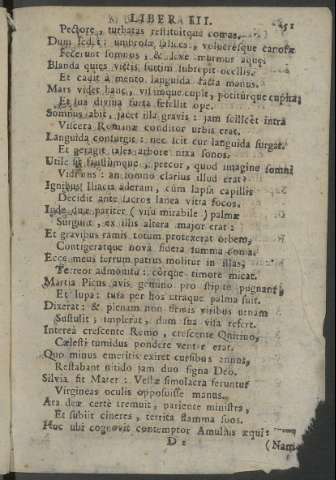 LIBER III.
51
Pectore, turbatas restituitque comas.
Dum sedet: umbrosæ salices, volucresque canoræ
Fecerunt somnos, & leve murmur aquæ.
Blanda quies victis furtim subrepit ocellis.
Et cadit a mento languida facta manus.
Mars videt hanc, visamque cupit, potiturque cupita;
Et sua divina furta fefellit ope.
Somnus abit, jacet illa gravis: jam scilicet intra
Viscera Romanæ conditor urbis erat.
Languida consurgit: nec scit cur languida surgat.
Et peragit tales arbore nixa sonos.
Utile sit faustumque, precor, quod imagine somni
Vidimus: an somno clarius illud erat?
Ignibus Iliacis aderam, cum lapsa capillis
Decidit ante sacros lanea vitta focos.
Inde duæ pariter (visu mirabile) palmæ
Surgunt, ex illis altera major erat:
Et gravibus ramis totum protexerat orbem,
Contigeratque nova sidera summa coma.
Ecce meus ferrum patruus molitur in illas;
Terreor admonitu: corque timore micat.
Martia Picus avis gemino pro stipite pugnant,
Et lupa: tuta per hos utraque palma fuit.
Dixerat: & plenam non firmis viribus urnam
Sustulit; implerat, dum sua visa refert.
Interea crescente Remo, crescente Quirino,
Cælesti tumidus pondere venter erat.
Quo minus emeritis exiret cursibus annus,
Restabant nitido jam duo signa Deo.
Silvia fit Mater: Vestæ simolacra feruntur
Virgineas oculis opposuisse manus.
Ara deæ certe tremuit, pariente ministra,
Et subiit cineres, territa flamma suos.
Huc ubi cognovit contemptor Amulius æqui:
D 2
(Nam